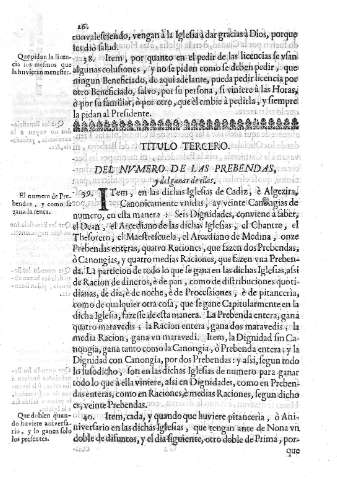 26.
convalesciendo, vengan à la Iglesia à dar gracias à Dios, porque
les diò salud.
Que pidan la licencia
los mesmos que
la huvieran menester.
38. Item, por quanto en el pedir de las licencias se vsan
algunas colusiones, y no se piden como se deben pedir, que
ningun Beneficiado, de aqui adelante, pueda pedir licencia por
otro Beneficiado, salvo, por su persona, si viniere à las Horas,
ò por su familiar, ò por otro, que el embie à pedirla, y siempre
la pidan al Presidente.
TITULO TERCERO.
DEL NVMERO DE LAS PREBENDAS,
y del ganar de ellas.
El numero de Prebendas,
y como se
gana la renta.
39. ITem, en las dichas Iglesias de Cadiz, è Algezira,
Canonicamente vnidas, ay veinte Canongias de
numero, en esta manera: Seis Dignidades, conviene à saber,
el Dean, el Arcediano de las dichas Iglesias, el Chantre, el
Thesorero, el Maestrescuela, el Arcediano de Medina, onze
Prebendas enteras, quatro Raciones, que fazen dos Prebendas,
ò Canongias, y quatro medias Raciones, que fazen vna Prebenda.
La particion de todo lo que se gana en las dichas Iglesias, assi
de Racion de dineros, è de pan, como de distribuciones quotidianas,
de dia, è de noche, è de Processiones, è de pitanceria,
como de qualquier otra cosa, que se gane Capitularmente en la
dicha Iglesia, fazese de esta manera. La Prebenda entera, gana
quatro maravedis, la Racion entera, gana dos maravedis, la
media Racion, gana vn maravedi. Item, la Dignidad sin Canongia,
gana tanto como la Canongia, ò Prebenda entera: y la
Dignidad con Canongia, por dos Prebendas: y assi, segun todo
lo susodicho, son en las dichas Iglesias de numero para ganar
todo lo que à ella viniere, assi en Dignidades, como en Prebendas
enteras, como en Raciones, è medias Raciones, segun dicho
es, veinte Prebendas.
Que doblen quando
huviere aniversario,
y lo ganen solo
los presentes.
40. Item, cada, y quando que huviere pitanceria, ò Aniversario
en las dichas Iglesias, que tengan ante de Nona vn
doble de difuntos, y el dia siguiente, otro doble de Prima, porque